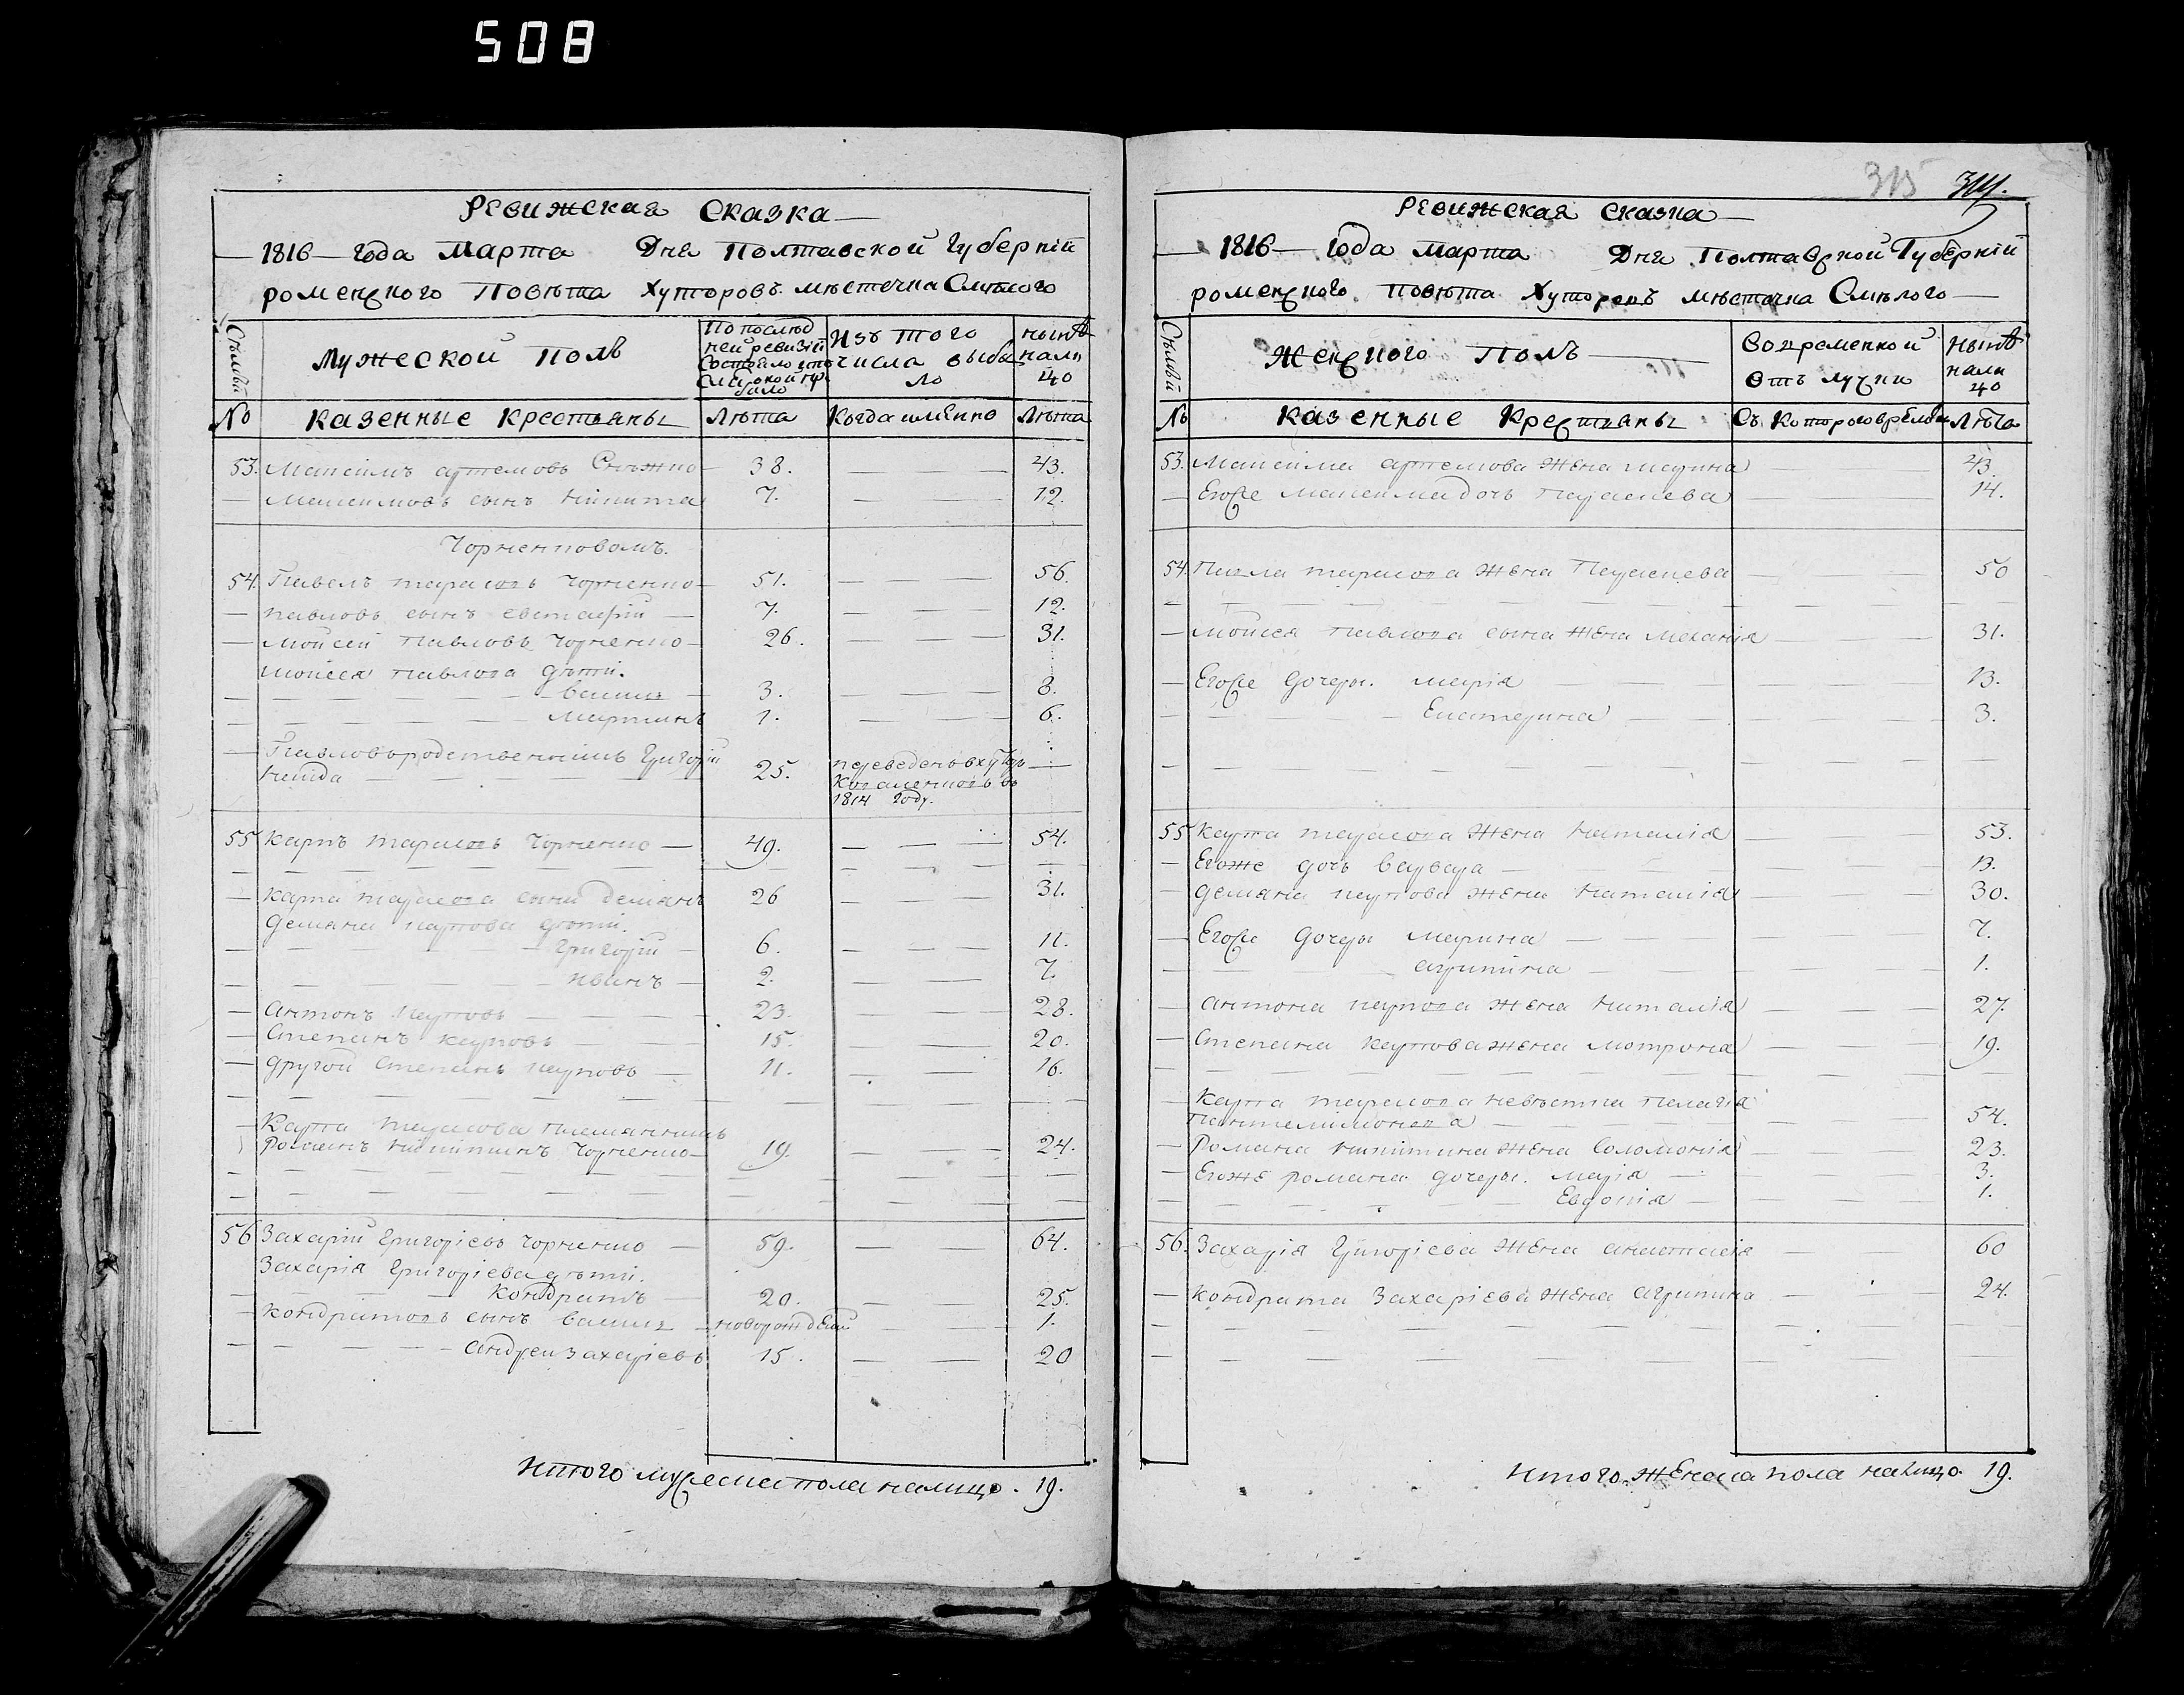 508
Ревижская Сказка —
— 1816 — года Марта Дня Полтавской Губерніи
роменского Повѣта Хуторовъ мѣстечка Смѣлого
Мужеской полъ
По послѣд
ней ревизіи
Состояло и по
было
Изъ того
числа выбы
ло
нынѣ
нали
цо
№ казенные крестьяны Лѣта Когда имѣнно Лѣта
53. Максимъ артемовъ Снѣжко 38. — — 43.
— Максимовъ сынъ Никита 7. — — 12.
Чорненковомъ.
54. Павелъ тарасовъ Чорненко — 51. — — — 56.
— павловъ сынъ евстафій — 7. — — — 12.
— Мойсей Павловъ Чорненко — 26. — — — 31.
Мойсея павлова дѣти.
— — — — — васили — 3. — — — 8.
— — — — — Мартинъ 1. — — — 6.
— Павловъ родственникъ Григорій
25. переведенъ в хуторъ —
в
1814 году.
55 карпъ тарасовъ Чорненко — 49. — — — 54.
— карпа тарасова сынъ демянъ 26 — — — 31.
демяна карпова дѣти.
— — — — Григорій — 6. — — — 11.
— — — — иванъ — 2. — — 7.
— антонъ карповъ — — — 23. — — 28.
— Степанъ карповъ — — 15. — — 20.
— другой Степанъ карповъ — 11. — — 16.
— Карпа тарасова племянникъ
Романъ никитинъ Чорненко — 19. — — 24.
56 Захарій Григоріевъ Чорненко — 59. — — 64.
Захарія Григоріева дѣти.
— — — — Кондратъ — 20. — — 25.
— кондратовъ сынъ васили — новорожденій — — 1.
— — — — андрей захаріевъ 15. — — 20
Итого мужеска пола налицо. 19.
315 314.
Ревижская сказка —
— 1816 — года марта Дня Полтавской Губерніи
роменского повѣта Хуторовъ мѣстечка Смѣлого —
Женского Полъ —
Во временной
отълучки
нынѣ
нали
цо
№ казенные Крестьяны Съ Которого времѣни Лѣта
53. Максима артемова жена марина — — 43.
— Егоже Максима дочь Параскева — — 14.
54. Павла тарасова жена Параскева — — 50
— мойсея павлова сына жена меланія — — 31.
— Егоже дочеры. марія — — 13.
— — — Екатерина — — — 3.
55 карпа тарасова жена наталія — — 53.
— Егоже дочь варвара — — — 13.
— демяна карпова жена наталія — — 30.
— Егоже дочеры марина — — — 7.
— — — агрипина — — — 1.
— антона карпова жена наталія — — 27.
— степана карпова жена мотрона — — 19.
— Карпа тарасова невѣстка пелагія
пантелимонова — — — 54.
— Романа никитина жена Соломонія — — 23.
— Егожѣ романа дочеры. марія — — 3.
— — — — Евдокія — — — 1.
56. Захарія Григоріева жена анастасія — — 60
— кондрата Захаріева жена агрипина — — 24.
Итого. жЕнска пола налицо. 19.